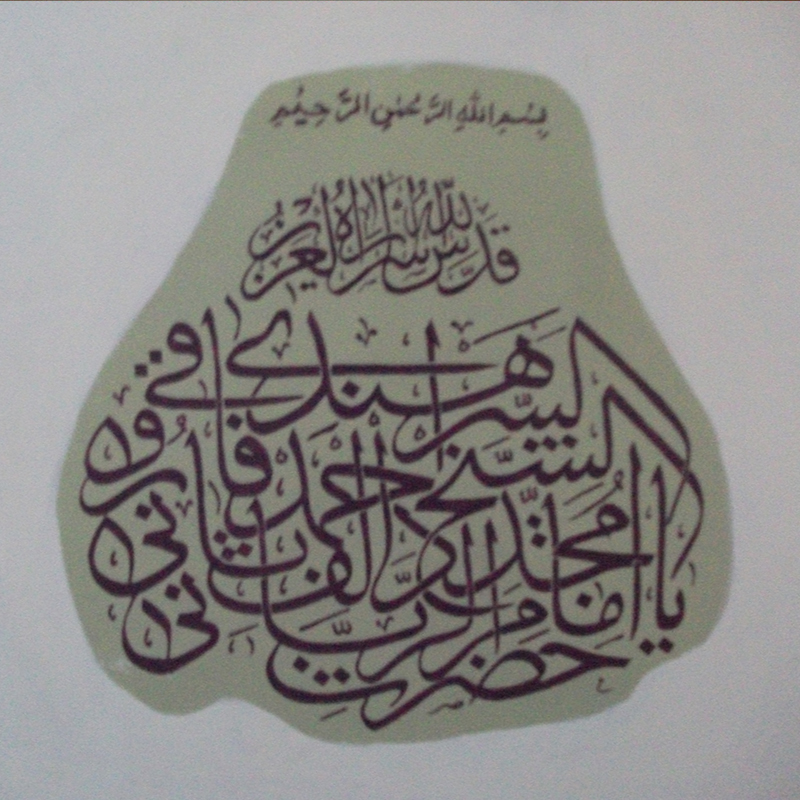 بِسْمِ اللهِ الرَّحْمٰنِ الرَّحِيْمِ
قَدَّسَ اللهُ اَسْرَارَهُ الْعَزِيْز
يا حضرت امام ربانى مجدد الف ثانى الشيخ احمد فاروقى السرهندى